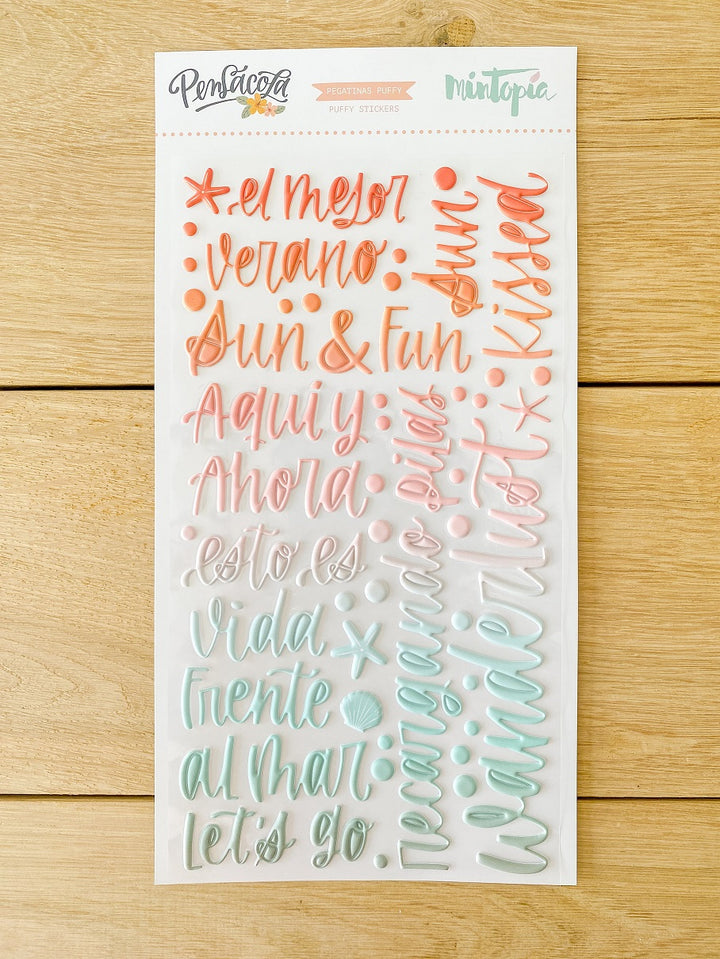 Pensácola
PEGATINAS PUFFY
PUFFY STICKERS
mintopía
el mejor
verano
Sun & Fun
Aquí y
Ahora
esto es
vida
Frente
al mar
Let's go
Sun
kissed
recargando pilas
wanderlust